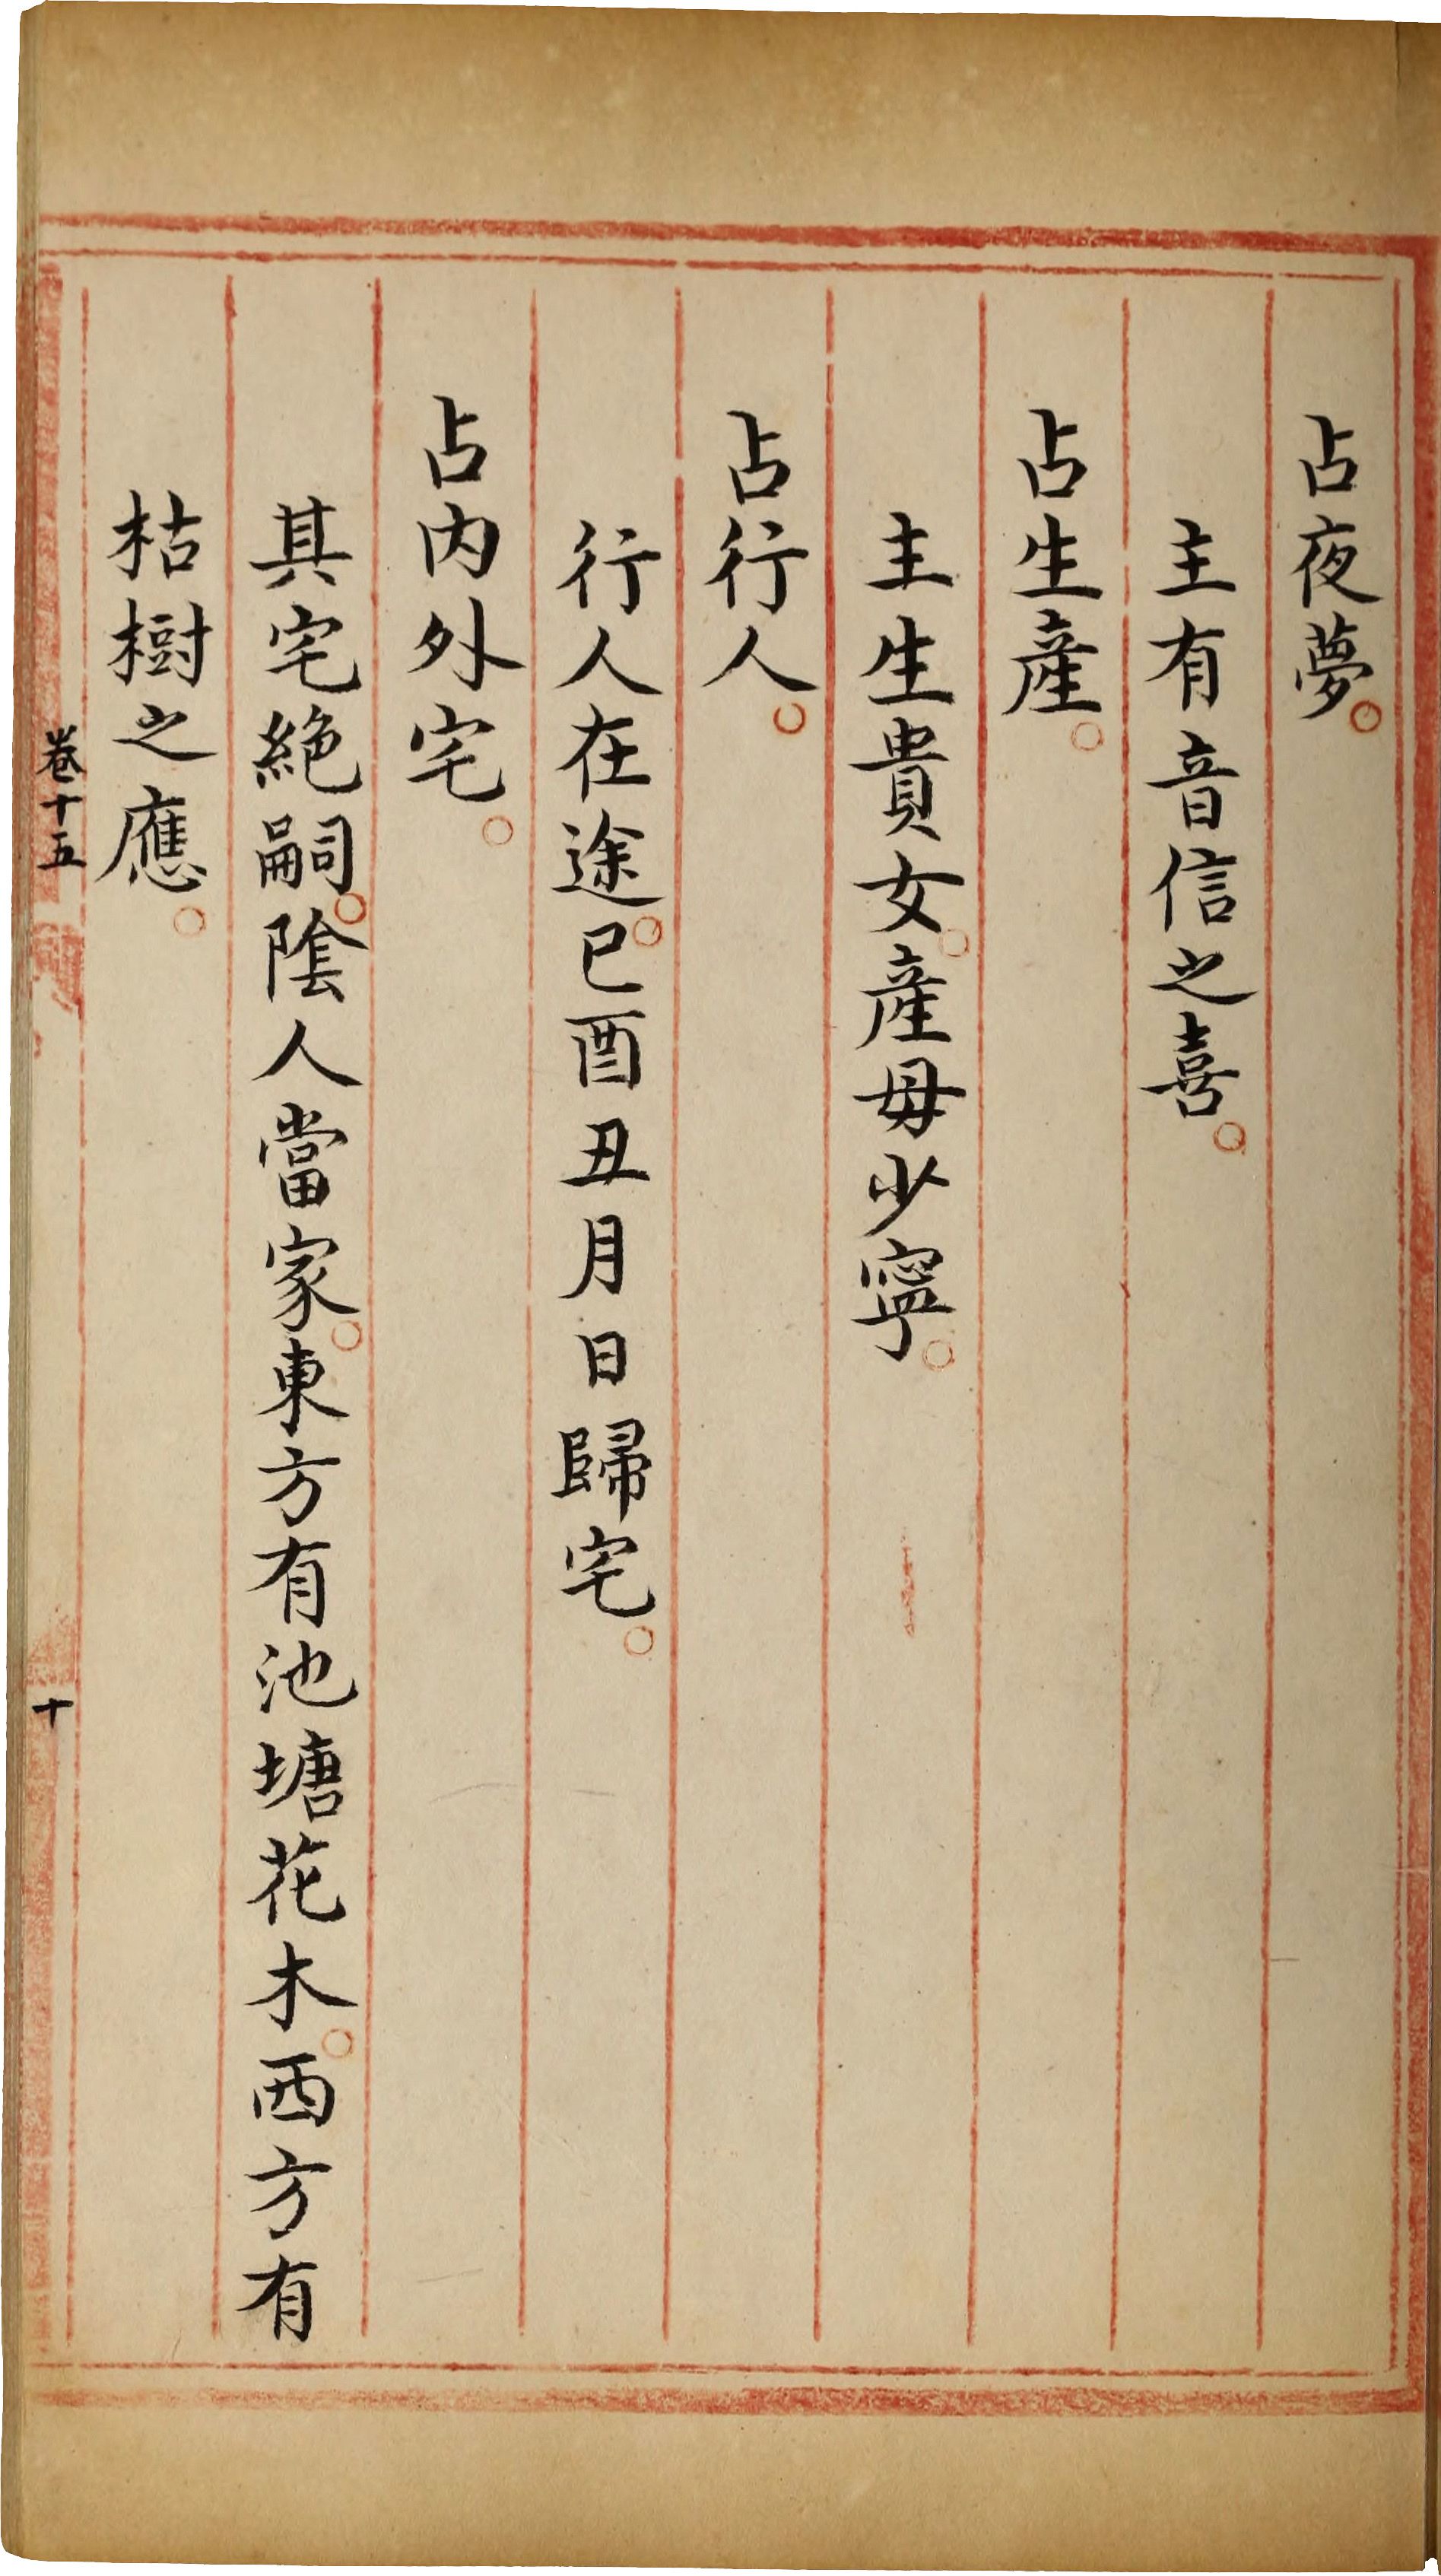 占夜夢。
主有音信之喜。
占生產。
主生貴女。產母少寧。
占行人。
行人在途。巳酉丑月日歸宅。
占內外宅。
其宅絕嗣。陰人當家。東方有池塘花木。西方有
枯樹之應。
卷十五
十